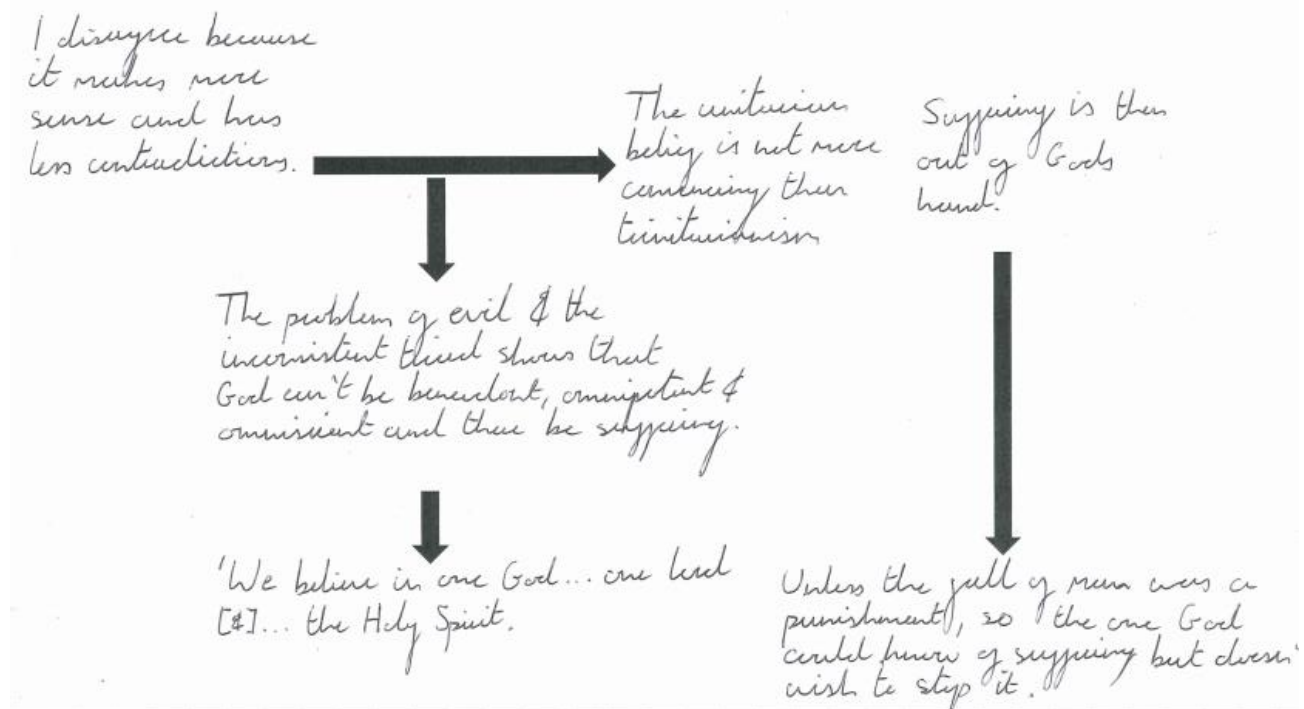 I disagree because
it makes more
sense and has
less contradictions.
The unitarian
belief is not more
convincing than
trinitarianism
Suffering is then
out of Gods
hand.
The problem of evil & the
inconsistent triad shows that
God can't be benevolent, omnipotent &
omniscient and there be suffering.
'We believe in one God... one lord
[&]... the Holy Spirit.
Unless the fall of man was a
punishment, so the one God
could know of suffering but doesn'
wish to stop it.